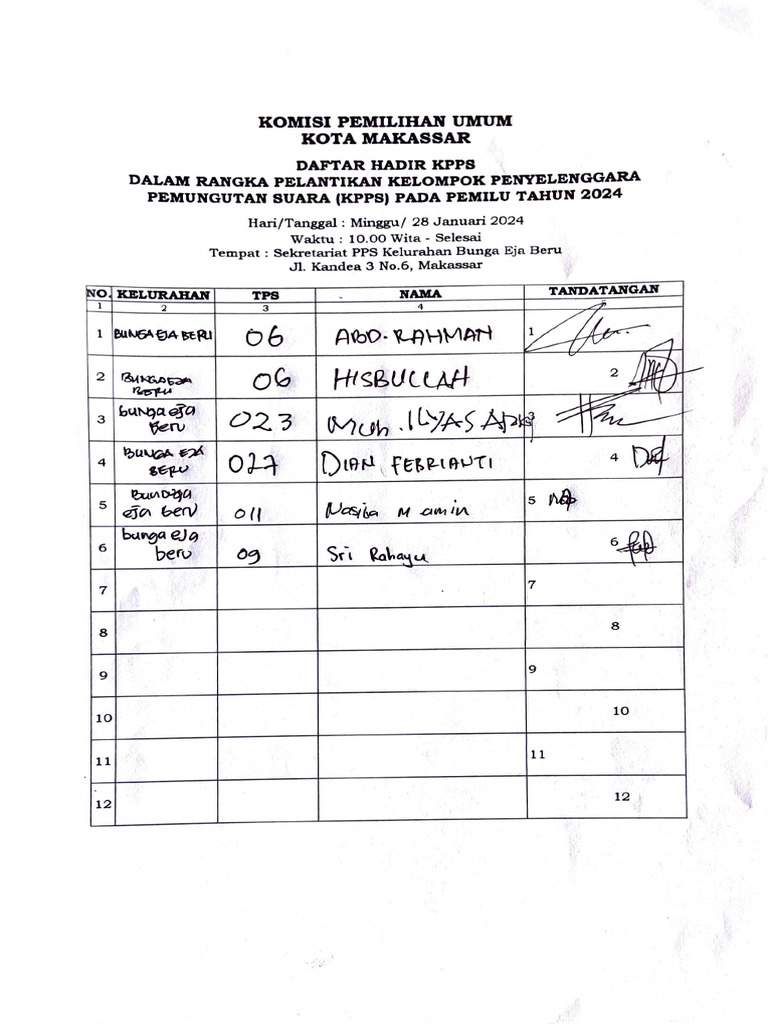 KOMISI PEMILIHAN UMUM
KOTA MAKASSAR
DAFTAR HADIR KPPS
DALAM RANGKA PELANTIKAN KELOMPOK PENYELENGGARA
PEMUNGUTAN SUARA (KPPS) PADA PEMILU TAHUN 2024
Hari/Tanggal : Minggu/ 28 Januari 2024
Waktu : 10.00 Wita - Selesai
Tempat : Sekretariat PPS Kelurahan Bunga Eja Beru
Jl. Kandea 3 No.6, Makassar
NO. KELURAHAN TPS NAMA TANDATANGAN
1 2 3 4
1 BUNGA EJA BERU 06 ABD. RAHMAN 1
2 BUNGA EJA BERU 06 HISBULLAH 2
3 bunga eja beru 023 Muh. ILYAS 3
4 BUNGA EJA BERU 027 DIAN FEBRIANTI 4
5 eja beru 011 Nasiba M amin 5
6 bunga eja beru 09 Sri Rahayu 6
7 7
8 8
9 9
10 10
11 11
12 12